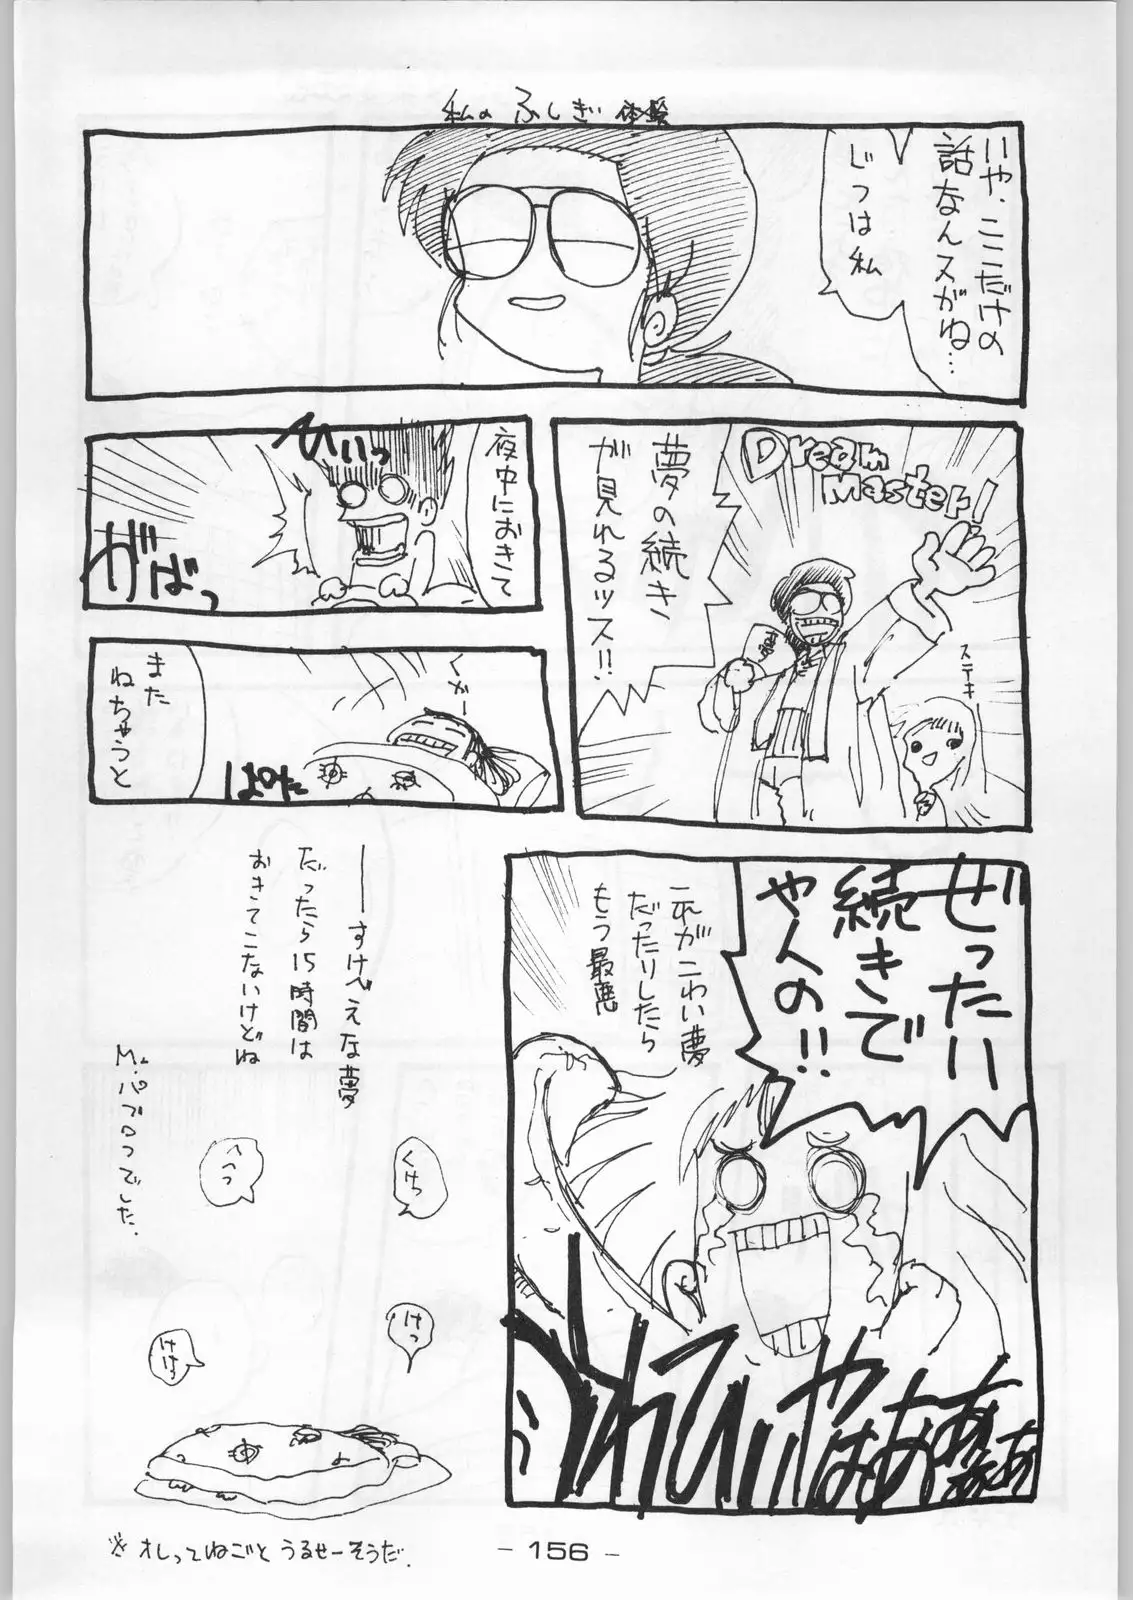 私のふしぎ体験
いや、ここだけの
話なんスがね…
じつは私
Dream
Master!
夢の続き
が見れるッス!!
ステキ
夜中におきて
ひいいっ
がばっ
また
ねちゃうと
くかー
ぱたっ
ぜったい
続きで
やんの!!
これがこわい夢
だったりしたら
もう最悪
うわひいやはああああ
――すけべえな夢
だったら15時間は
おきてこないけどね
Mr.パブロってでした.
くけっ
へっっ
けっ
けけっ
※オレってねごと うるせーそうだ.
- 156 -